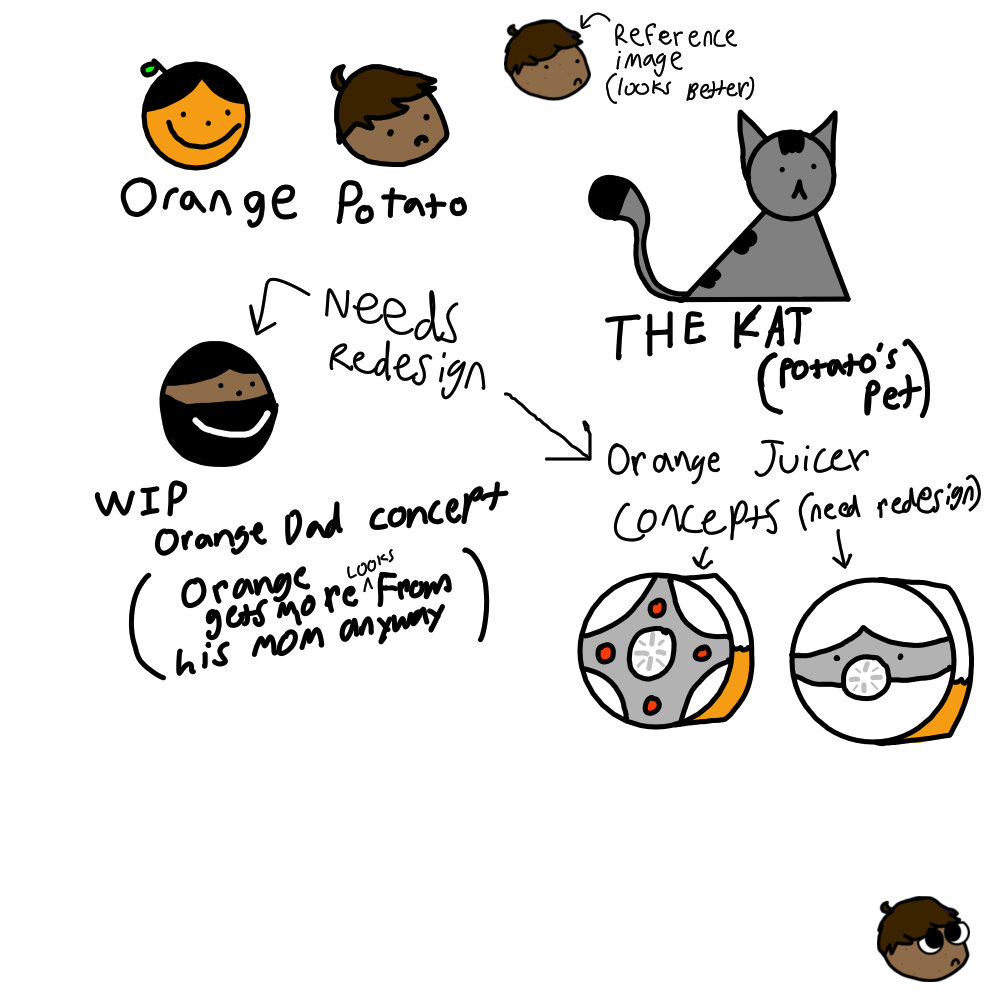 Reference
image
(looks Better)
Orange
Potato
THE KAT
(potato's
pet)
Needs
Redesign
WIP
Orange Dad concept
(Orange
gets more looks From
his mom anyway)
Orange Juicer
Concepts (need redesign)